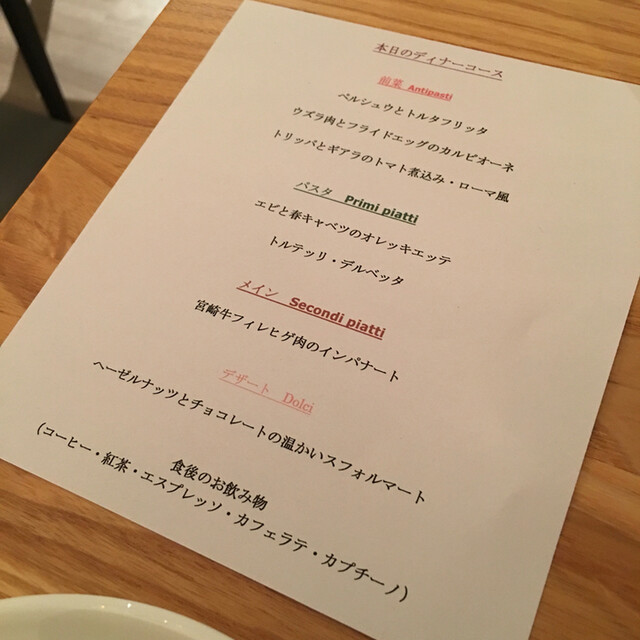 本日のディナーコース
前菜 Antipasti
ペルシュウとトルタフリッタ
ウズラ肉とフライドエッグのカルピオーネ
トリッパとギアラのトマト煮込み・ローマ風
パスタ Primi piatti
エビと春キャベツのオレッキエッテ
トルテッリ・デルベッタ
メイン Secondi piatti
宮崎牛フィレヒゲ肉のインパナート
デザート Dolci
ヘーゼルナッツとチョコレートの温かいスフォルマート
食後のお飲み物
(コーヒー・紅茶・エスプレッソ・カフェラテ・カプチーノ)